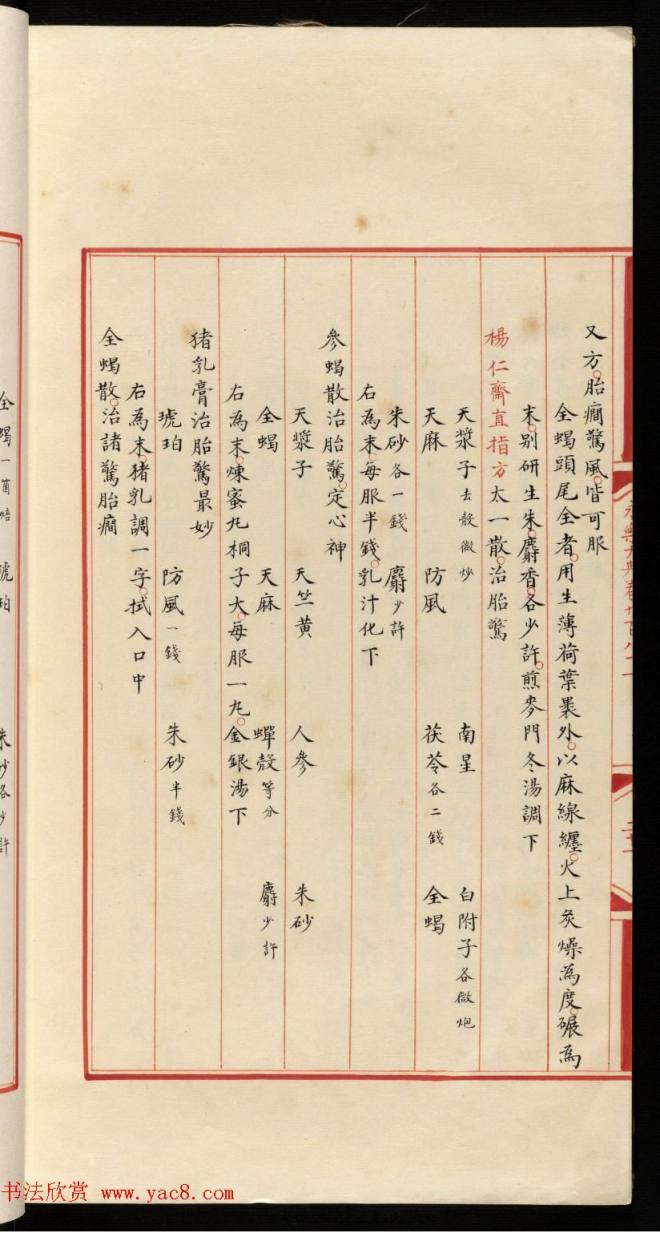 又方。胎癎驚風。皆可服
全蝎頭尾全者。用生薄荷葉裹外。以麻線纏。火上炙燥為度。碾為
末。别研生朱。麝香。各少許。煎麥門冬湯調下
楊仁齋直指方太一散。治胎驚
天漿子去殼微炒 南星 白附子各微炮
天麻 防風 茯苓各二錢 全蝎
朱砂各一錢 麝少許
右為末。每服半錢。乳汁化下
參蝎散治胎驚。定心神
天漿子 天竺黄 人參 朱砂
全蝎 天麻 蟬殼等分 麝少許
右為末。煉蜜丸桐子大。每服一丸。金銀湯下
猪乳膏治胎驚最妙
琥珀 防風一錢 朱砂半錢
右為末。猪乳調一字。拭入口中
全蝎散。治諸驚胎癎
全蝎一箇 琥珀 朱砂各少許
書法欣赏 www.yac8.com